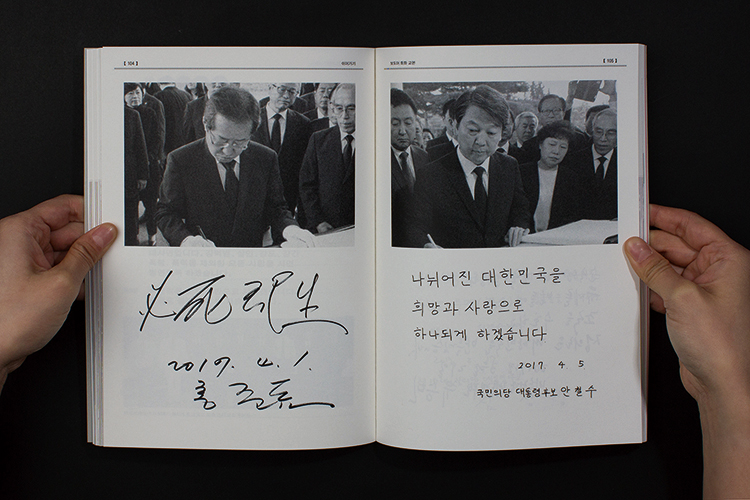 【 104 】
必死則生
2017. 4. 1.
홍준표
【 105 】
나뉘어진 대한민국을
희망과 사랑으로
하나되게 하겠습니다
2017. 4. 5
국민의당 대통령후보 안철수